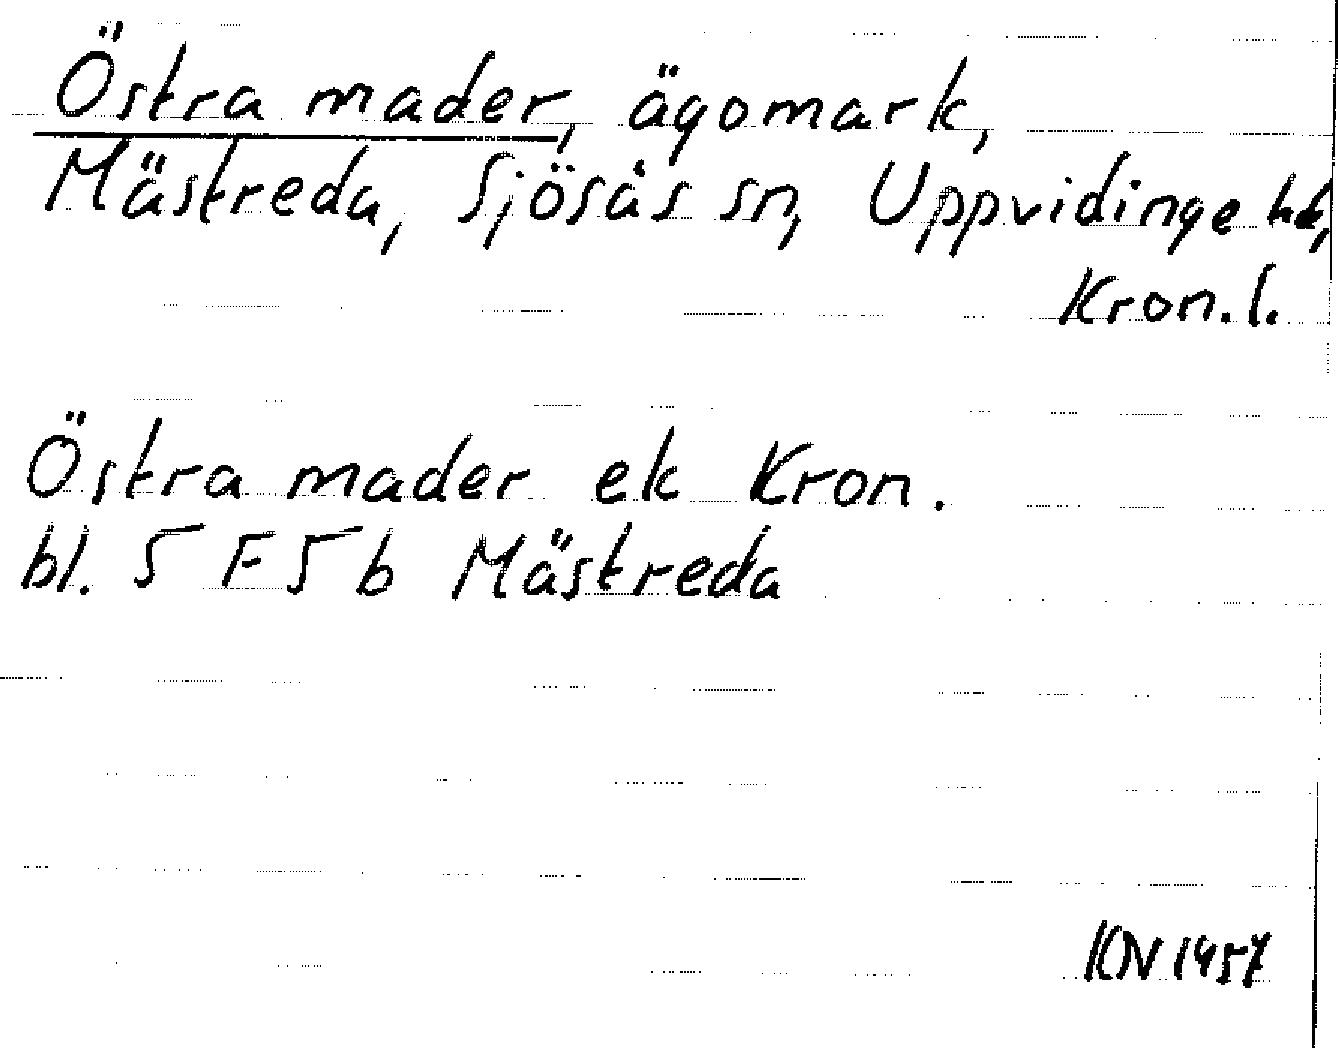 Östra mader, ägomark,
Mästreda, Sjösås sn, Uppvidinge hd,
Kron. l.
Östra mader ek Kron.
bl. 5 F 5 b Mästreda
KN 1957